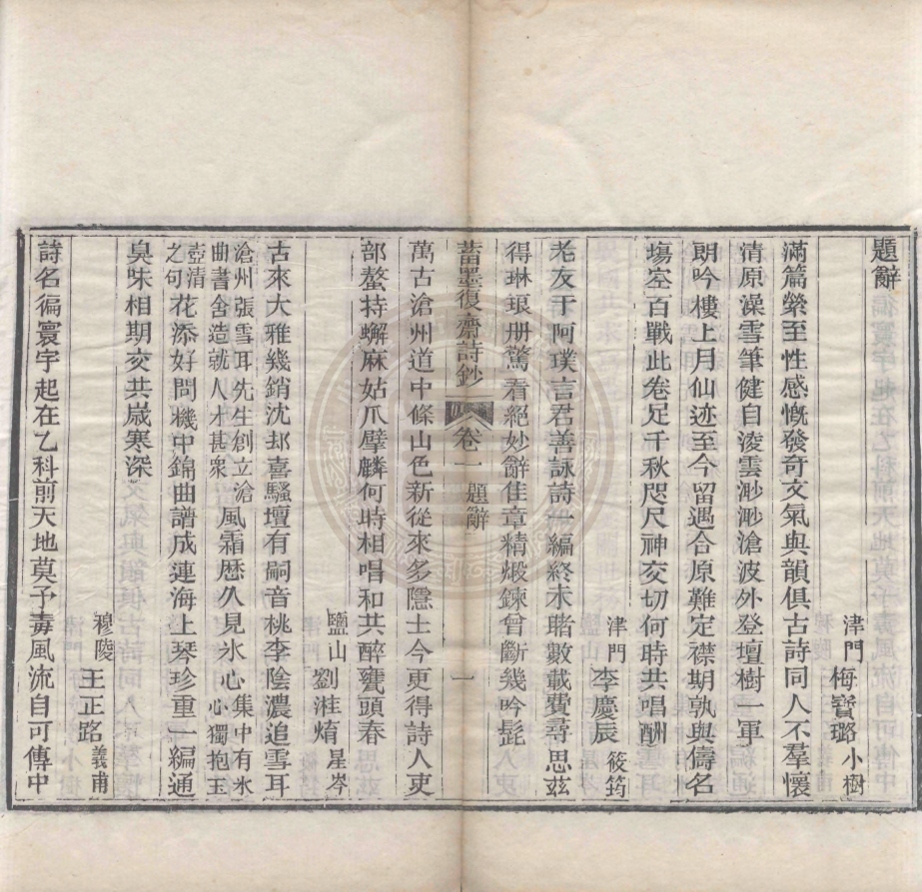 題辭
津門梅寶璐小樹
滿篇縈至性感慨發奇文氣與韻俱古詩同人不羣懷
清原澡雪筆健自淩雲渺渺滄波外登壇樹一軍
朗吟樓上月仙迹至今留遇合原難定襟期孰與儔名
塲空百戰此卷足千秋咫尺神交切何時共唱酬
津門李慶辰筱筠
老友于阿璞言君善詠詩一編終未睹數載費尋思茲
得琳琅册驚看絕妙辭佳章精煅鍊曾斷幾吟髭
蓄墨復齋詩鈔 卷一 題辭 一
萬古滄州道中條山色新從來多隱士今更得詩人吏
部螯持蠏麻姑爪擘麟何時相唱和共醉甕頭春
鹽山劉淮焴星岑
古來大雅幾銷沈却喜騷壇有嗣音桃李陰濃追雪耳
滄州張雪耳先生創立滄
曲書舍造就人才甚衆
風霜歷久見氷心
集中有氷
心獨抱玉
壺清
之句
花添好問機中錦曲譜成連海上琴珍重一編通
臭味相期交共歲寒深
穆陵王正路義甫
詩名徧寰宇起在乙科前天地莫予毒風流自可傳中